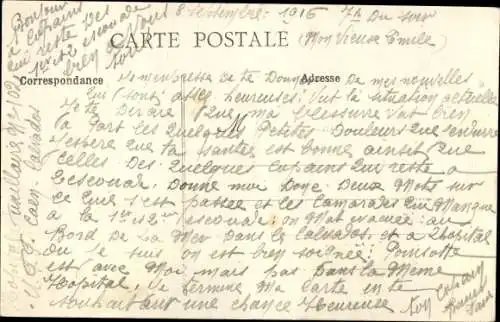 Bonjour
à Cupains
qui reste des
1re et 2 escouade
bien à vous
8 septembre 1916
7h Du soir
CARTE POSTALE
(Mon Vieux Emile
Correspondance
Adresse
Je m'enpresse de te Donner de mes nouvelles
qui sont assez heureuses! Vut la situation actuelle
Je te Dirare que ma blessure Vat bien
à Part les quelques Petites Douleurs que j'endure
J'espère que ta santée est bonne ainsit que
celles Des quelques cupains qui reste a
l'escouade. Donne moi Donc Deux Mots sur
ce qui s'est passée et les camarades qui manque
a la 1re et 2me escouade: on M'at évacuée au
Bord De La Mer Dans le Calvados, et a l'hopital
ou je suis on est bien soignée; Ponsotte
est avec Moi mais pas Dans la Même
Hopital, Je termine Ma carte en te
souhaitant une chance Heureuse
Ton cupain
Caen Calvados